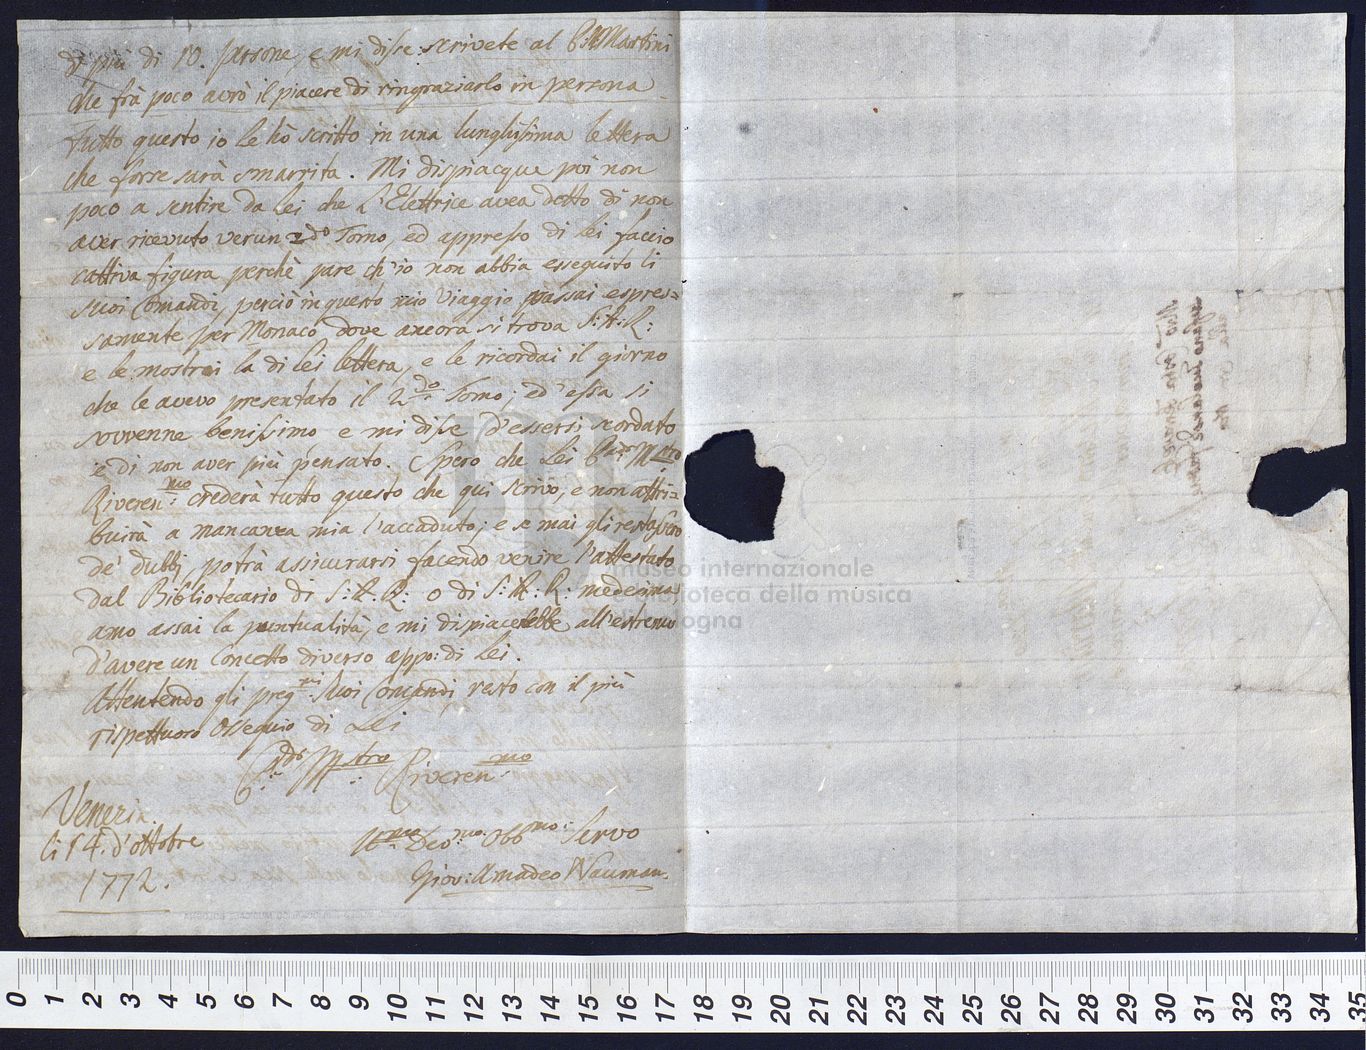 di più di 10. persone, e mi disse: scrivete al P. M. Martini
che frà poco avrò il piacere di ringraziarlo in persona.
Tutto questo io le hò scritto in una lunghissima lettera
che forse sarà smarrita. Mi dispiacque poi non
poco a sentire da Lei che l'Elettrice avea detto di non
aver ricevuto verun 2do Tomo, ed appresso di Lei faccio
cattiva figura perchè pare ch'io non abbia esseguito li
suoi Comandi, perciò in questo mio Viaggio passai espres=
samente per Monaco dove ancora si trova S: A: R:
e le mostrai la di Lei lettera, e le ricordai il giorno
che le avevo presentato il 2do Tomo; ed essa si
sovvenne benissimo e mi disse d'essersi scordato
e di non aver più pensato. Spero che Lei Pre Mtro
Riverenmo crederà tutto questo che qui scrivo, e non attri=
buirà a mancanza mia l'accaduto; e se mai gli restassero
de' dubbj, potrà assicurarsi facendo venire l'attestato
dal Bibliotecario di S: A: R: o di S: A: R: medesima
amo assai la puntualità, e mi dispiacerebbe all'estremo
d'avere un Concetto diverso appo: di Lei.
Attentendo gli pregmi Suoi Comandi, resto con il più
rispettuoso Ossequio di Lei
Mstro Riverenmo
Venezia.
li 14. d'ottobre
1772.
Devmo: Obbmo: Servo
Giov: Amadeo Nauman.
museo internazionale
e biblioteca della musica
di bologna
0 1 2 3 4 5 6 7 8 9 10 11 12 13 14 15 16 17 18 19 20 21 22 23 24 25 26 27 28 29 30 31 32 33 34 35